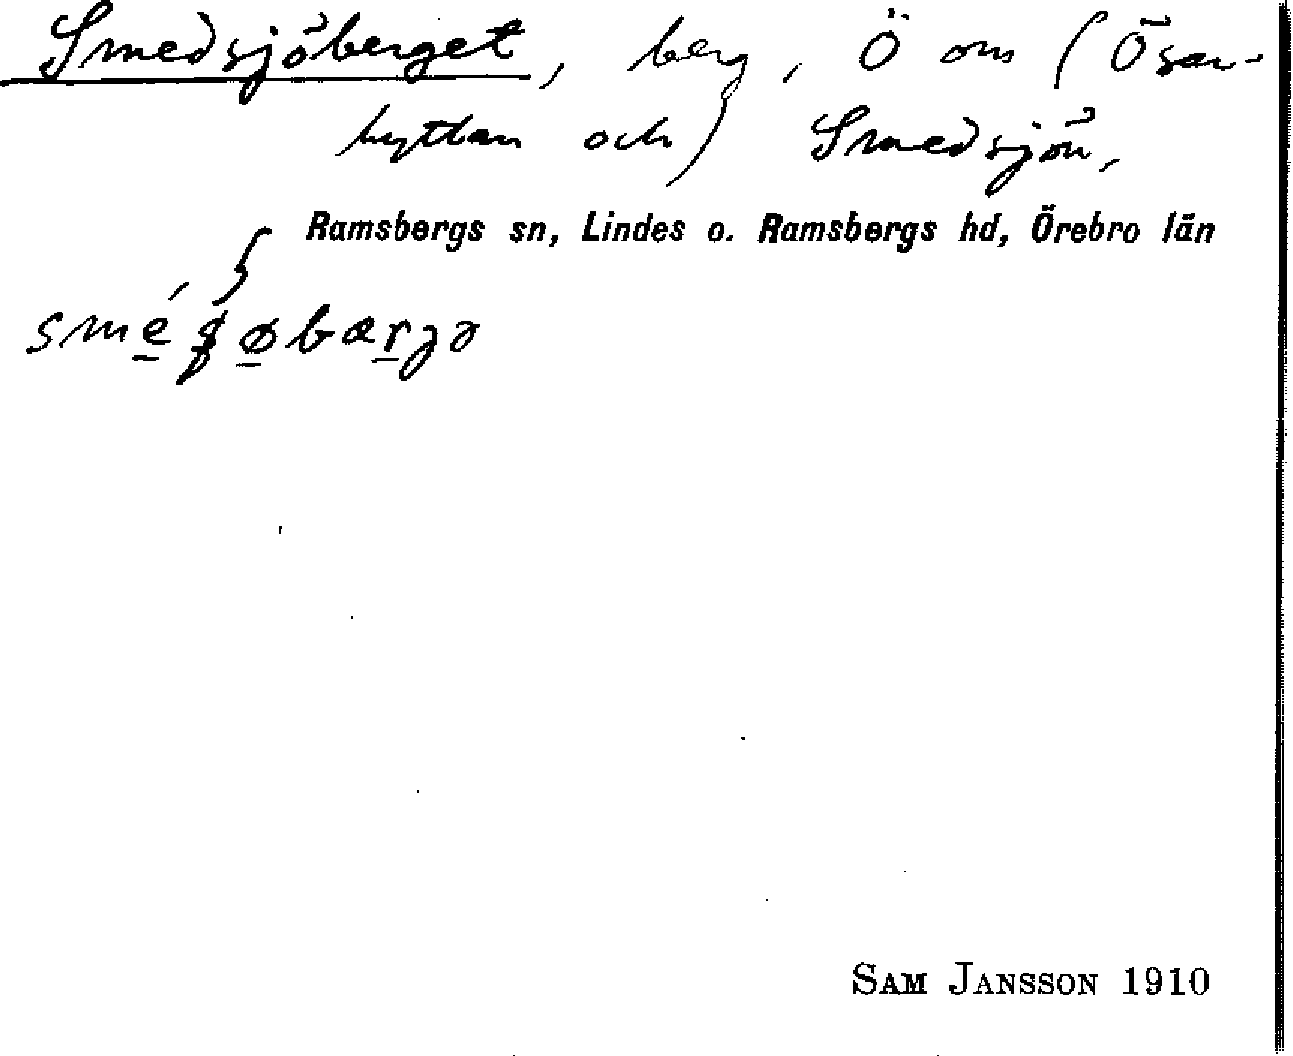 Smedsjöberget, berg, Ö om (Ösar-
hyttan och) Smedsjön,
Ramsbergs sn, Lindes o. Ramsbergs hd, Örebro län
SAM JANSSON 1910